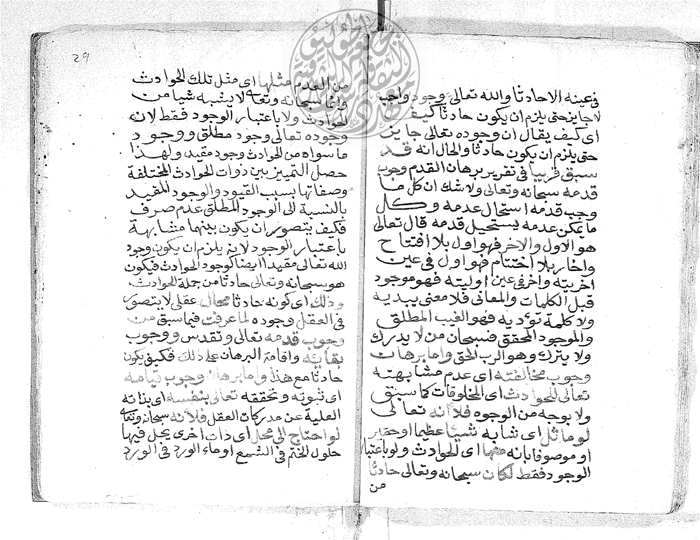 في عينه الا حادثا والله تعالى وجود واجب
لا جايز حتى يلزم ان يكون حادثا كيف
اي كيف يقال ان وجوده تعالى جايز
حتى يلزم ان يكون حادثا والحال انه قد
سبق قريبا في تقرير برهان القدم وجوب
قدمه سبحانه وتعالى ولا شك ان كل ما
وجب قدمه استحال عدمه وكل
ما يمكن عدمه يستحيل قدمه قال تعالى
هو الاول والاخر فهو اول بلا افتتاح
واخر بلا اختتام فهو اول في عين
اخريته واخر في عين اوليته فهو موجود
قبل الكلمات والمعاني فلا معنى يبديه
ولا كلمة تؤديه فهو الغيب المطلق
والموجود المحقق فسبحان من لا يدرك
ولا يترك وهو الرب الحق واما برهان
وجوب مخالفته اي عدم مشابهته
تعالى للحوادث اي المخلوقات كما سبق
ولا بوجه من الوجوه فلانه تعالى
لو ماثل اي شابه شيئا عظيما او حقيرا
او موصوفا بانه منها اي الحوادث ولو باعتبار
الوجود فقط لكان سبحانه وتعالى حادثا
من
29
من العدم مثلها اي مثل تلك الحوادث
وانه سبحانه وتعالى لا يشبه شيا من
الحوادث ولا باعتبار الوجود فقط لانه
وجوده تعالى وجود مطلق ووجود
ما سواه من الحوادث وجود مقيد ولهذا
حصل التمييز بين ذوات الحوادث المختلفة
وصفاتها بسبب القيود والوجود المقيد
بالنسبة الى الوجود المطلق عدم صرف
فكيف يتصور ان يكون بينهما مشابهة
باعتبار الوجود لانه يلزم ان يكون وجود
الله تعالى مقيدا ايضا كوجود الحوادث فيكون
هو سبحانه وتعالى حادثا من جملة الحوادث
وذلك اي كونه حادثا محال عقلي لا يتصور
في العقل وجوده لما عرفت فيما سبق من
وجوب قدمه تعالى وتقدس ووجوب
بقائه واقامة البرهان على ذلك فكيف يكون
حادثا مع هذا واما برهان وجوب قيامه
اي ثبوته وتحققه تعالى بنفسه اي بذاته
العلية عن مدركات العقل فلانه سبحانه وتعالى
لو احتاج الى محل اي ذات اخرى يحل فيها
حلول الختم في الشمع او ماء الورد في الورد